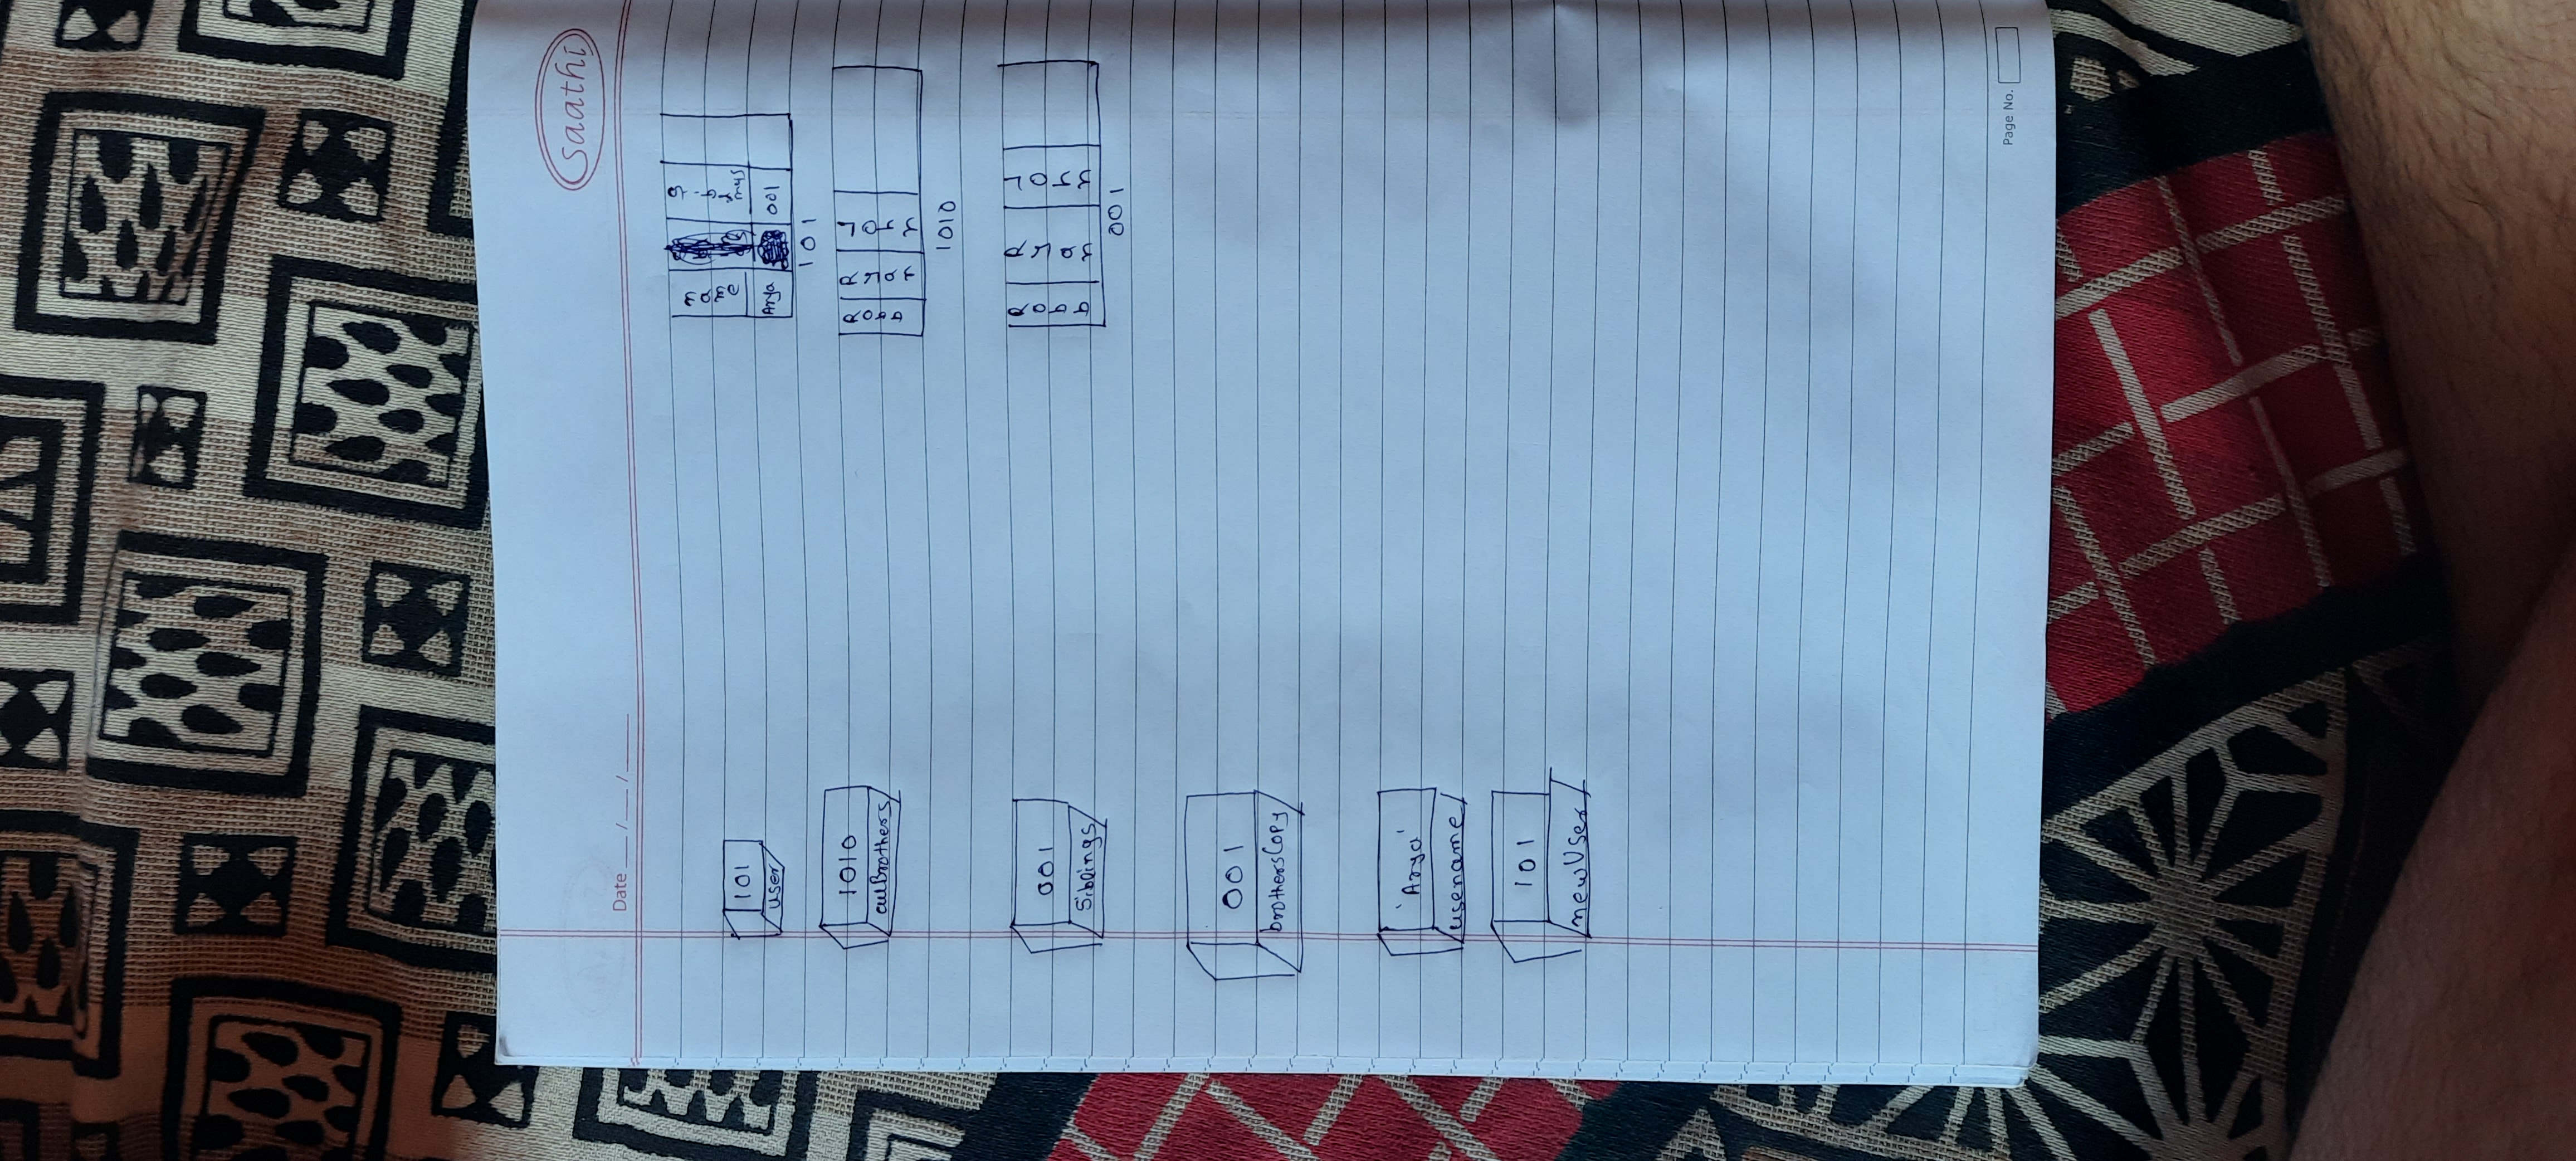 saathi
Date __/__/____
101
user
1010
allBrothers
001
Siblings
001
brothersCopy
'Arya'
usename
101
newUser
name
Arya
001
101
Robb
Ryan
John
1010
Robb
Ryan
John
001
Page No.